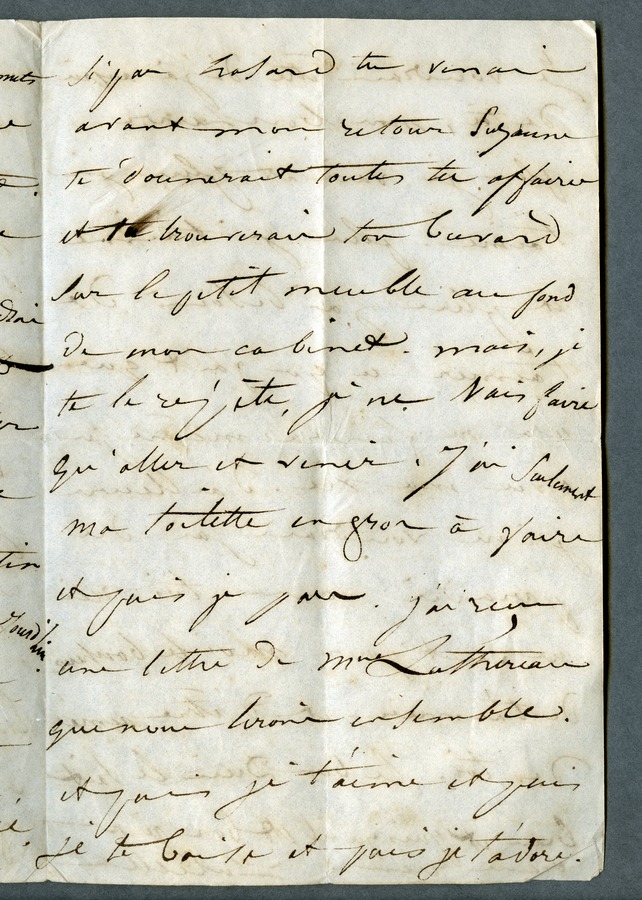 si par hasard tu venais
avant mon retour Suzanne
te donnerait toutes tes affaires
et tu trouverais ton buvard
sur le petit meuble au fond
de mon cabinet. mais, je
te le répète, je ne vais faire
qu'aller et venir. J'ai seulement
ma toilette en gros à faire
et puis je pars. j'ai reçu
une lettre de Mme Luthereau
que nous lirons ensemble.
et puis je t'aime et puis
je te baise et puis je t'adore.